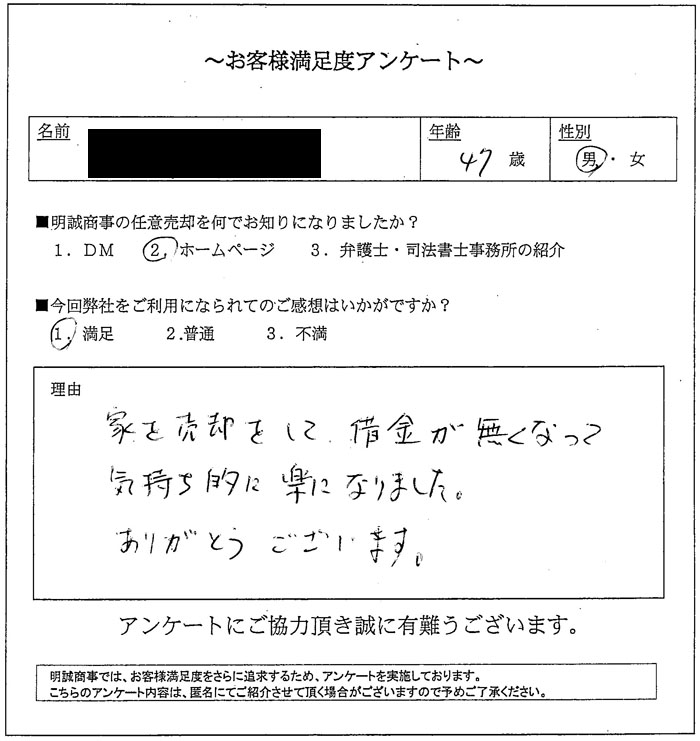 ~お客様満足度アンケート~
名前
年齢
性別
47 歳
男・女
■明誠商事の任意売却を何でお知りになりましたか?
1. DM 2. ホームページ 3. 弁護士・司法書士事務所の紹介
■今回弊社をご利用になられてのご感想はいかがですか?
1. 満足 2.普通 3. 不満
理由
家を売却をして、借金が無くなって
気持ち的に楽になりました。
ありがとうございます。
アンケートにご協力頂き誠に有難うございます。
明誠商事では、お客様満足度をさらに追求するため、アンケートを実施しております。
こちらのアンケート内容は、匿名にてご紹介させて頂く場合がございますので予めご了承ください。